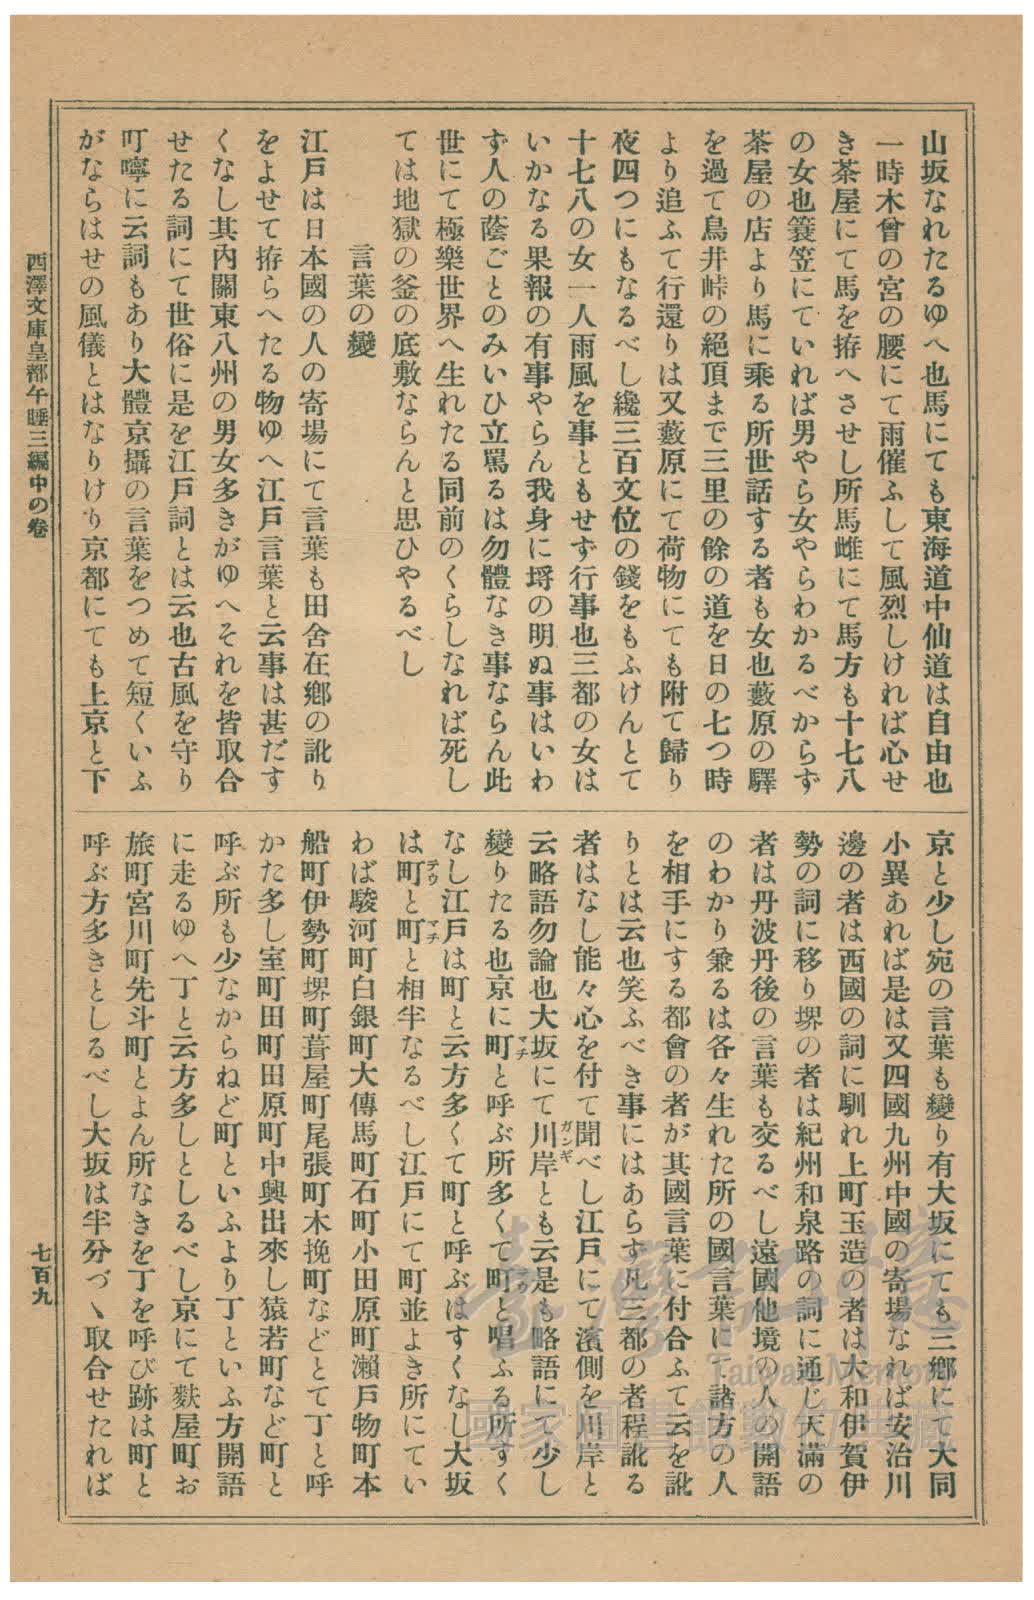 山坂なれたるゆへ也馬にても東海道中仙道は自由也
一時木曾の宮の腰にて雨催ふして風烈しければ心せ
き茶屋にて馬を拵へさせし所馬雌にて馬方も十七八
の女也簑笠にていれば男やら女やらわかるべからず
茶屋の店より馬に乘る所世話する者も女也藪原の驛
を過て鳥井峠の絕頂まで三里の餘の道を日の七つ時
より追ふて行還りは又藪原にて荷物にても附て歸り
夜四つにもなるべし纔三百文位の錢をもふけんとて
十七八の女一人雨風を事ともせず行事也三都の女は
いかなる果報の有事やらん我身に埒の明ぬ事はいわ
ず人の蔭ごとのみいひ立罵るは勿體なき事ならん此
世にて極樂世界へ生れたる同前のくらしなれば死し
ては地獄の釜の底敷ならんと思ひやるべし
言葉の變
江戸は日本國の人の寄場にて言葉も田舍在鄕の訛り
をよせて拵らへたる物ゆへ江戸言葉と云事は甚だす
くなし其內關東八州の男女多きがゆへそれを皆取合
せたる詞にて世俗に是を江戸詞とは云也古風を守り
叮嚀に云詞もあり大體京攝の言葉をつめて短くいふ
がならはせの風儀とはなりけり京都にても上京と下
京と少し宛の言葉も變り有大坂にても三鄕にて大同
小異あれば是は又四國九州中國の寄場なれば安治川
邊の者は西國の詞に馴れ上町玉造の者は大和伊賀伊
勢の詞に移り堺の者は紀州和泉路の詞に通じ天滿の
者は丹波丹後の言葉も交るべし遠國他境の人の開語
のわかり兼るは各々生れた所の國言葉にて諸方の人
を相手にする都會の者が其國言葉に付合ふて云を訛
りとは云也笑ふべき事にはあらず凡三都の者程訛る
者はなし能々心を付て聞べし江戸にて濱側を川岸と
云略語勿論也大坂にて川岸ガンギとも云是も略語にて少し
變りたる也京に町マチと呼ぶ所多くて町と唱ふる所すく
なし江戸は町と云方多くて町と呼ぶはすくなし大坂
は町テウと町マチと相半なるべし江戸にて町並よき所にてい
わば駿河町白銀町大傳馬町石町小田原町瀨戸物町本
船町伊勢町堺町葺屋町尾張町木挽町などとて丁と呼
かた多し室町田町田原町中興出來し猿若町など町と
呼ぶ所も少なからねど町といふより丁といふ方開語
に走るゆへ丁と云方多しとしるべし京にて麩屋町お
旅町宮川町先斗町とよん所なきを丁を呼び跡は町と
呼ぶ方多きとしるべし大坂は半分づゝ取合せたれば
西澤文庫皇都午睡三編中の卷
七百九
臺灣記憶
Taiwan Memory
國家圖書館數位典藏